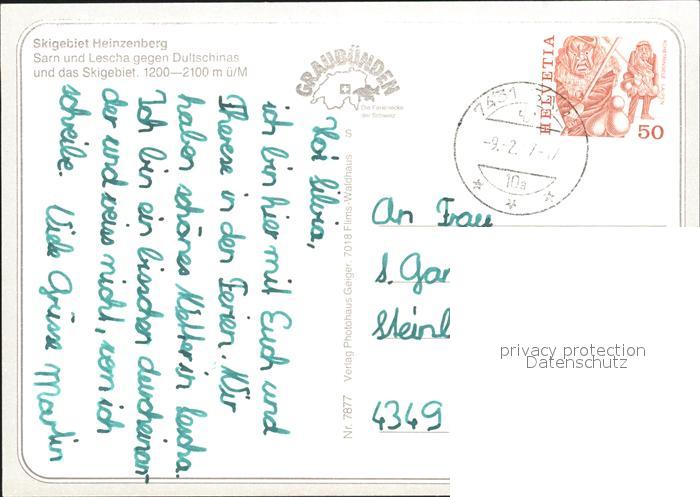 Skigebiet Heinzenberg
Sarn und Lescha gegen Dultschinas
und das Skigebiet. 1200—2100 m ü/M
GRAUBÜNDEN
Die Ferienecke
der Schweiz
HELVETIA
50
7431
-9.-2.
10a
S
Nr. 7877 Verlag Photohaus Geiger, 7018 Flims-Waldhaus
Hoi Silvia,
ich bin hier mit Euch und
Therese in den Ferien. Wir
haben schönes Wetter in Lescha.
Ich bin ein bisschen durcheinan-
der und weiss nicht, wem ich
schreibe. Viele Grüsse Martin
An Frau
S. Gan
Steinl
4349
privacy protection
Datenschutz